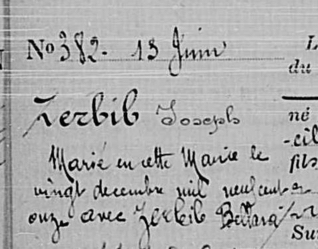 No 382. 13 Juin
L
du
Zerbib Joseph
né
-cil
fils
Marié en cette Mairie le
vingt decembre mil neuf cent
onze avec Zerbib
Su